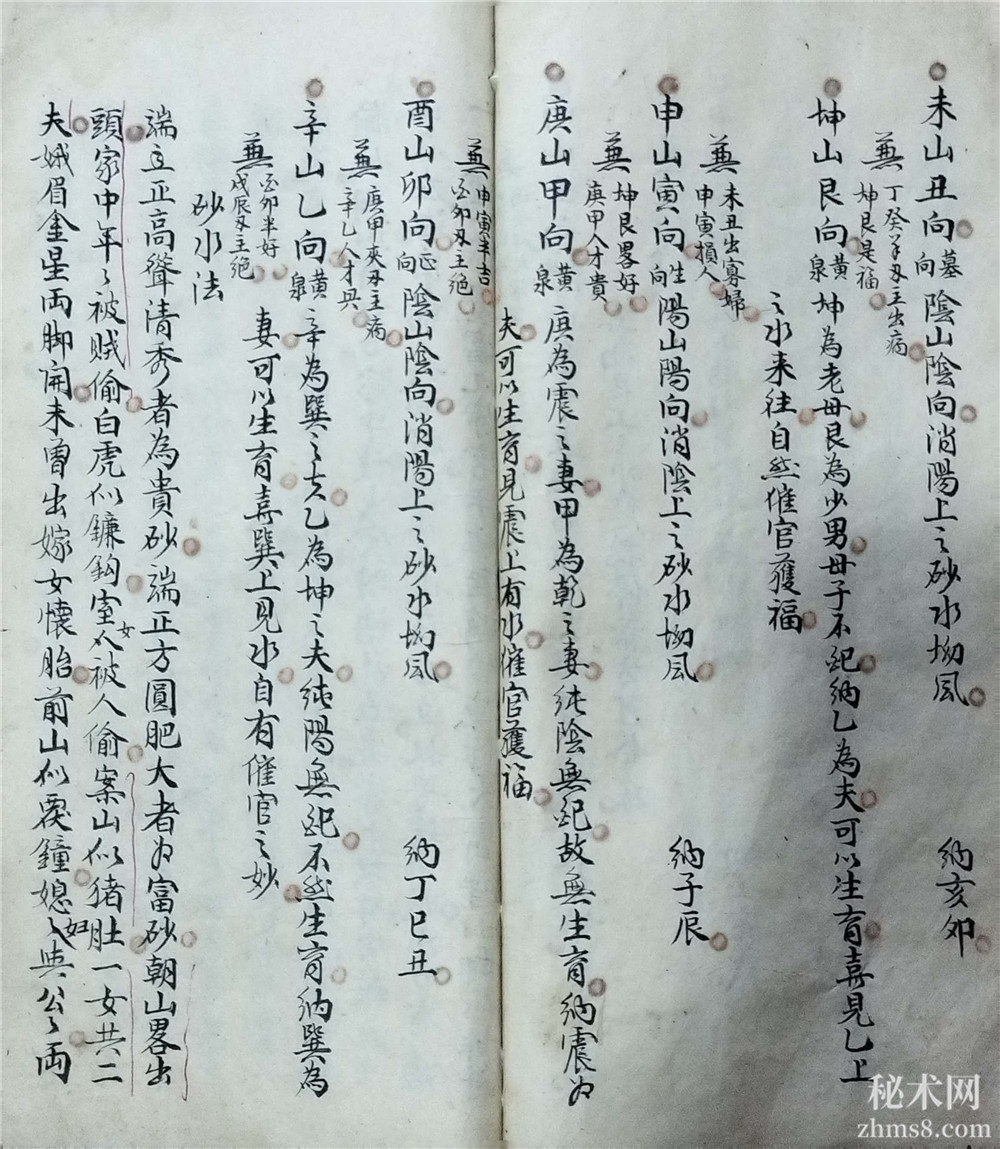 未山丑向墓向 陰山陰向消陽上之砂水坳風 納亥卯
兼 丁癸羊刃主出病 坤艮是福
坤山艮向黃泉 坤為老母艮為少男母子不紀納乙為夫可以生育喜見乙上
之水来往自然催官獲福
兼 未丑出寡婦 申寅損人
申山寅向生向 陽山陽向消陰上之砂水坳風 納子辰
兼 坤艮畧好 庚甲人才貴
庚山甲向黃泉 庚為震之妻甲為乾之妻纯陰無紀故無生育納震为
夫可以生育見震上有水催官獲福
兼 申寅半吉 酉卯刃主绝
酉山卯向正向 陰山陰向消陽上之砂水坳風 納丁巳丑
兼 庚甲夾刃主病 辛乙人才興
辛山乙向黃泉 辛為巽之夫乙為坤之夫纯陽無紀不然生育納巽為
妻可以生育喜巽上見水自有催官之妙
兼 酉卯半好 戌辰刃主绝
砂水法
端立正高聳清秀者為貴砂端正方圓肥大者为富砂朝山畧出
頭家中年々被贼偷白虎似鐮鈎室女被人偷案山似猪肚一女共二
夫娥眉金星両脚開未曾出嫁女懷胎前山似覆鐘媳妇與公々両
秘术网
zhms8.com